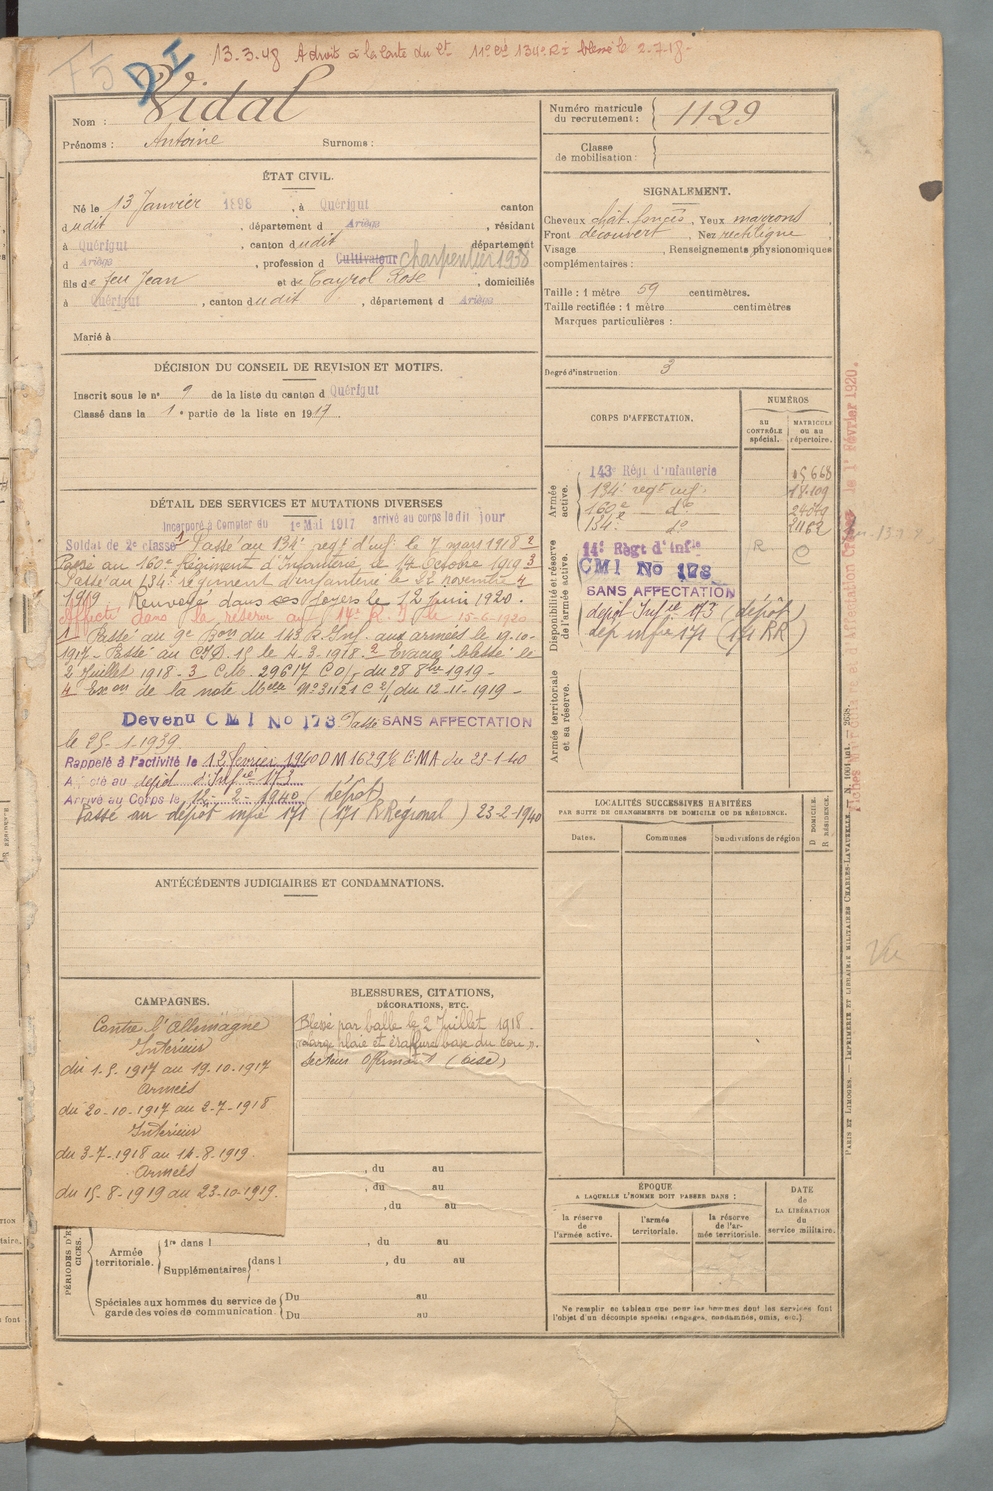 13-3-48 A droit à la Carte du Ct 11e Cie 134e RI blessé le 2-7-18-
F5
DI
Nom : Vidal
Prénoms : Antoine Surnoms :
Numéro matricule du recrutement : 1129
Classe de mobilisation :
ÉTAT CIVIL.
Né le 13 Janvier 1898, à Quérigut canton
dudit, département d Ariège, résidant
à Quérigut, canton dudit département
d Ariège, profession d Cultivateur charpentier 1938
fils de feu Jean et de Cayrol Rose, domiciliés
à Quérigut, canton dudit, département d Ariège
Marié à
SIGNALEMENT.
Cheveux chât. foncés, Yeux marrons,
Front découvert, Nez rectiligne
Visage , Renseignements physionomiques
complémentaires :
Taille : 1 mètre 59 centimètres.
Taille rectifiée : 1 mètre centimètres
Marques particulières :
Degré d'instruction 3
DÉCISION DU CONSEIL DE REVISION ET MOTIFS.
Inscrit sous le n° 9 de la liste du canton d Quérigut
Classé dans la 1e partie de la liste en 1917.
DÉTAIL DES SERVICES ET MUTATIONS DIVERSES
Incorporé à Compter du 1e Mai 1917 arrivé au corps le dit jour
Soldat de 2e classe 1 Passé au 134e regt d'inf. le 7 mars 1918 2
Passé au 160e Régiment d'Infanterie le 14 Octobre 1919 3
Passé au 134e régiment d'infanterie le novembre 4
1919 Renvoyé dans ses foyers le 12 Juin 1920.
Affecté dans la réserve au 14e R. I. le 15-6-1920
1 Passé au 9e Bon du 143 R. Inf. aux armées le 19-10-
1917- Passé au CID. 15 le 4-3-1918. 2 Evacué blessé le
2 Juillet 1918- 3 C.M. 29617 C0/1 du 28 8bre 1919-
4 Exon de la note Melle N°31121 C2/1 du 12-11-1919-
Devenu CMI No 173 Passé SANS AFFECTATION
le 25-1-1939.
Rappelé à l'activité le 12 février 1940 DM 1629 E.MA du 23-1-40
Affecté au dépôt d'Infie 173
Arrivé au Corps le 12-2-1940 (dépôt)
Passé au dépôt infie 171 (171 R Régional) 23-2-1940
ANTÉCÉDENTS JUDICIAIRES ET CONDAMNATIONS.
CORPS D'AFFECTATION.
NUMÉROS
AU CONTRÔLE spécial.
MATRICULE OU AU répertoire.
Armée active.
143e Régt d'Infanterie 15668
134e regt inf. 18.109
160e do 24079
134e do 2462
Disponibilité et réserve de l'armée active.
14e Régt d'Infie R O
CMI No 173
SANS AFFECTATION
dépôt Infie 173 (dépôt)
dép infie 171 (171 RR)
Armée territoriale et sa réserve.
LOCALITÉS SUCCESSIVES HABITÉES
PAR SUITE DE CHANGEMENTS DE DOMICILE OU DE RÉSIDENCE.
Dates. Communes Subdivisions de région
D DOMICILE. R RÉSIDENCE.
CAMPAGNES.
Contre l'Allemagne
Intérieur
du 1-5-1917 au 19-10-1917
Armées
du 20-10-1917 au 2-7-1918
Intérieur
du 3-7-1918 au 14-8-1919.
Armées
du 15-8-1919 au 23-10-1919.
BLESSURES, CITATIONS,
DÉCORATIONS, ETC.
Blessé par balle le 2 Juillet 1918.
large plaie et éraflure base du cou.
Secteur (Oise)
, du au
, du au
, du au
PÉRIODES D'EXERCICES.
Armée territoriale.
1re dans l , du au
Supplémentaires dans l , du au
Spéciales aux hommes du service de garde des voies de communication.
Du au
Du au
ÉPOQUE
A LAQUELLE L'HOMME DOIT PASSER DANS :
la réserve de l'armée active.
l'armée territoriale.
la réserve de l'armée territoriale.
DATE de LA LIBÉRATION du service militaire.
Ne remplir ce tableau que pour les hommes dont les services font
l'objet d'un décompte spécial (engagés, condamnés, omis, etc.)
PARIS ET LIMOGES. — IMPRIMERIE ET LIBRAIRIE MILITAIRES CHARLES-LAVAUZELLE.
le 1r Février 1920.
Vu